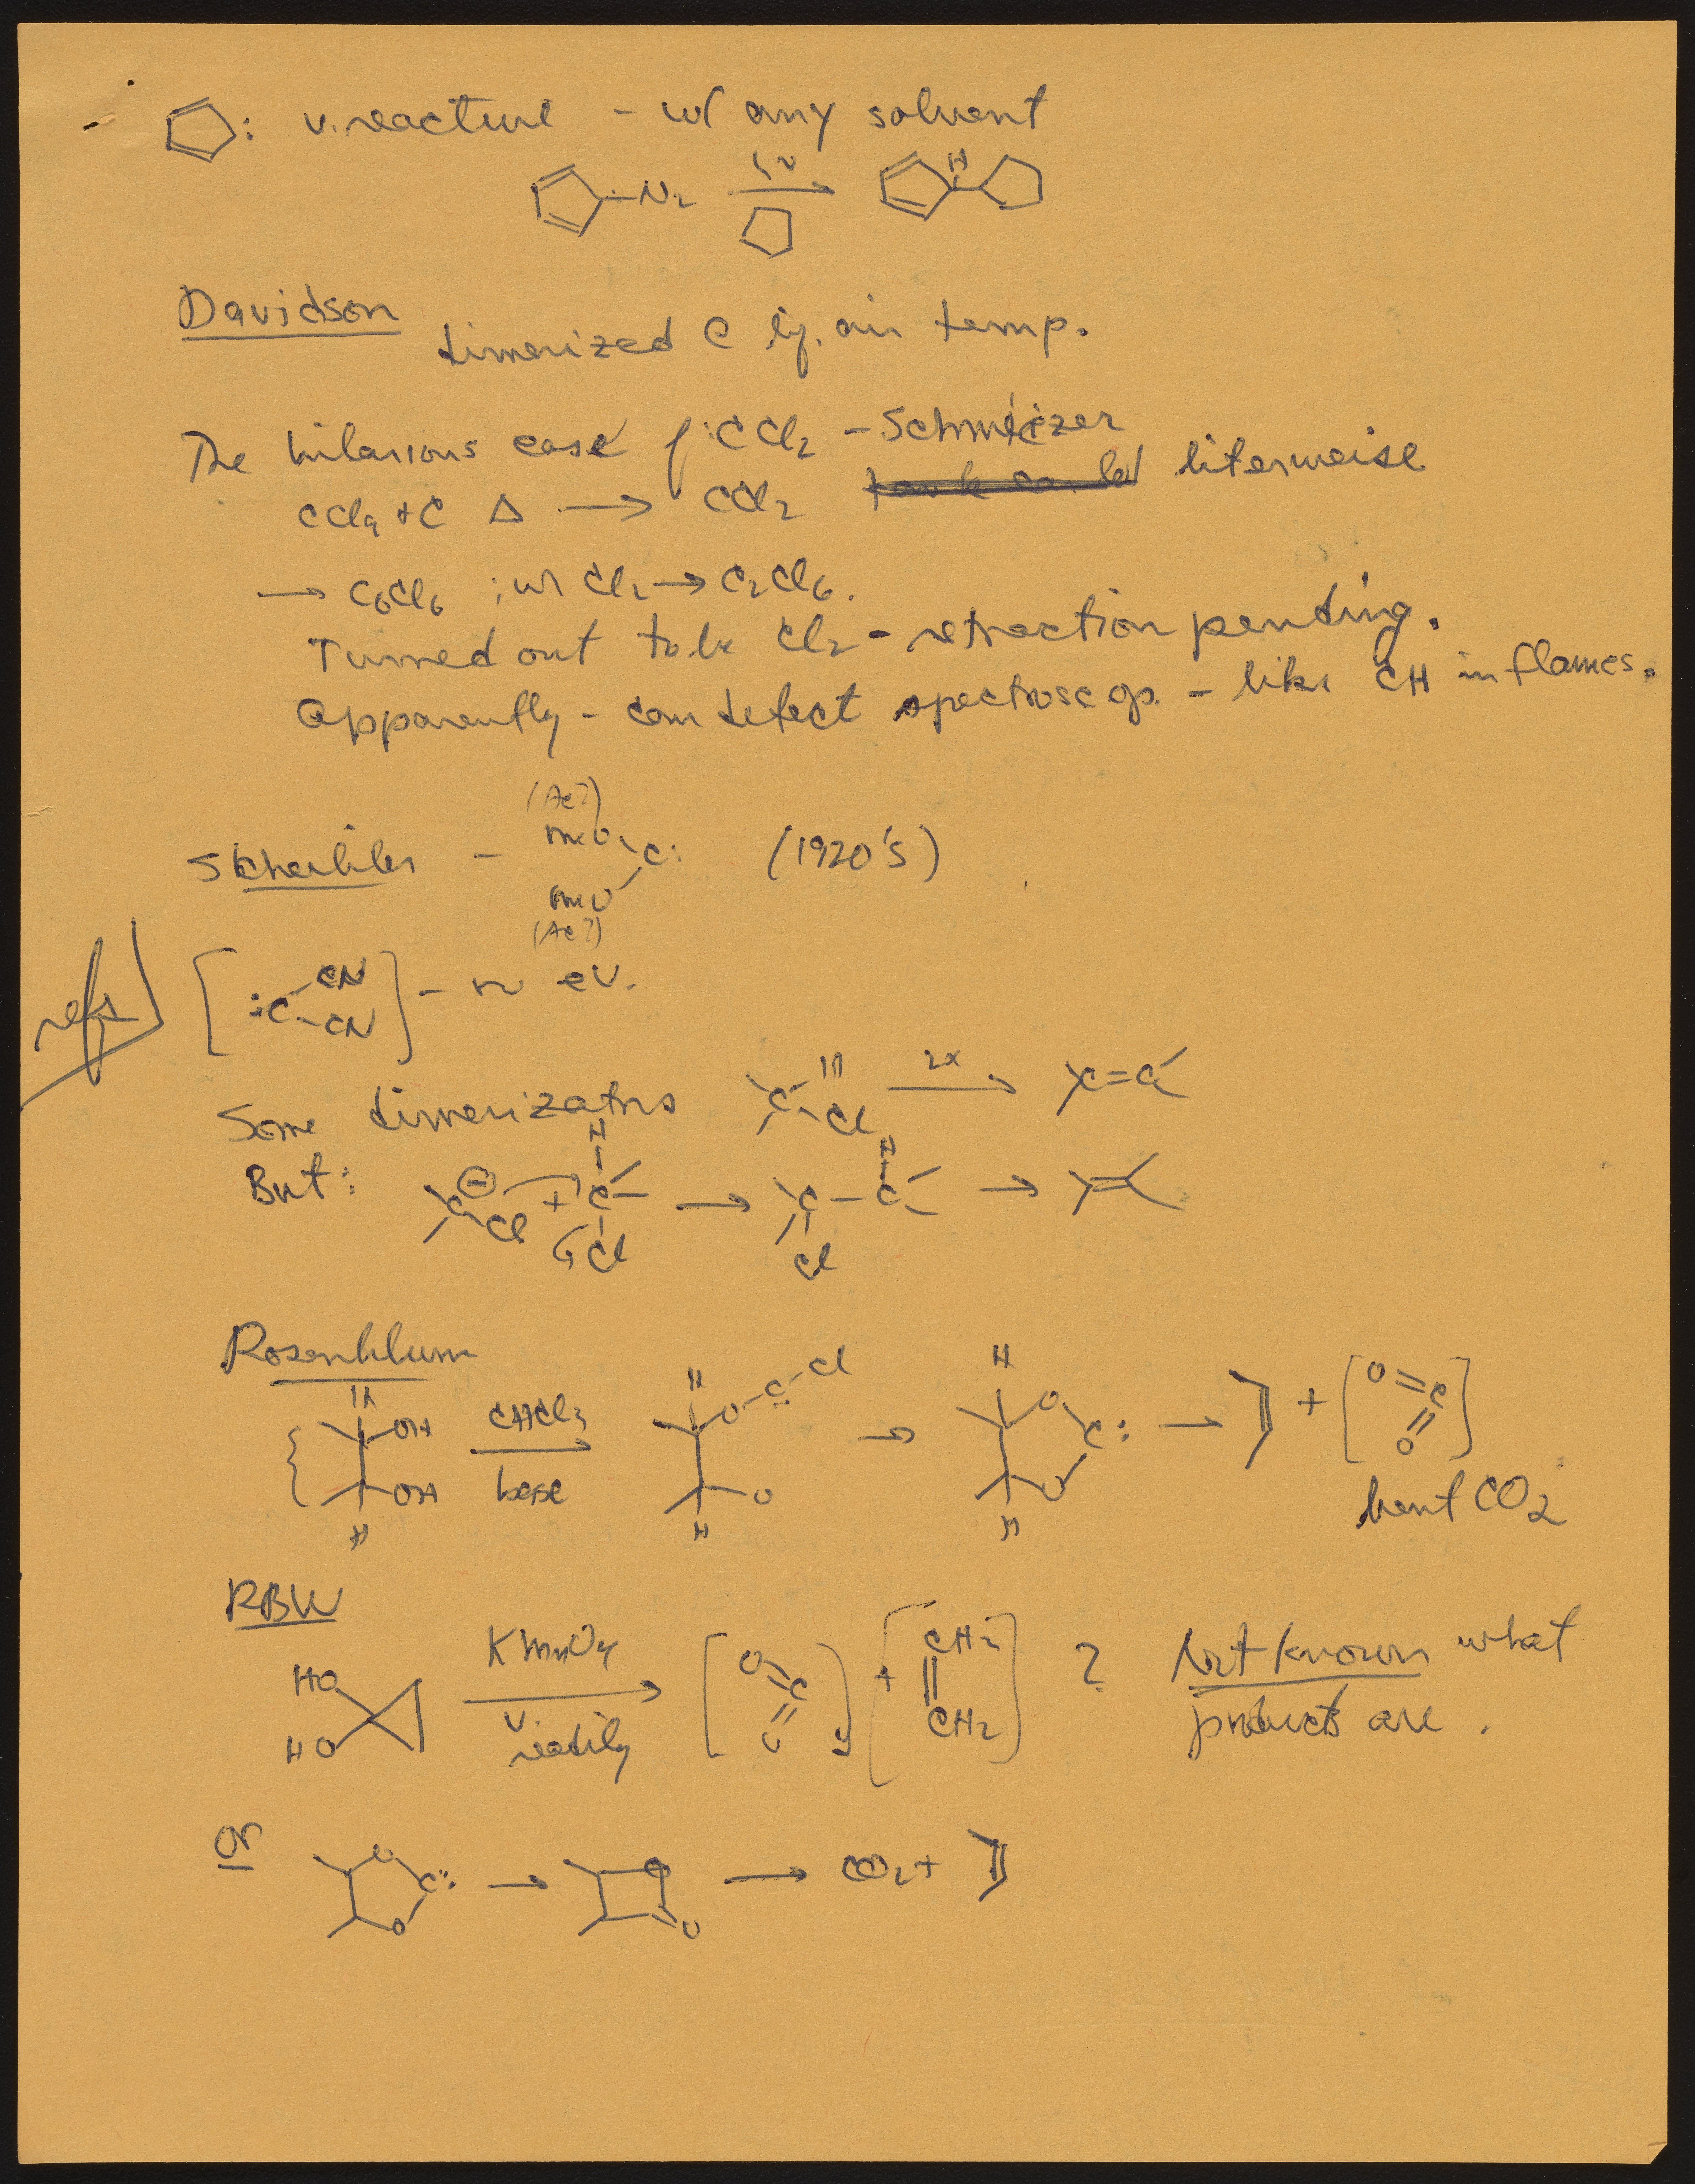 : v. reactive - w/ any solvent
-N₂ hν → H
Davidson
dimerized @ liq. air temp.
The hilarious case of :CCl₂ - Schmeizer
CCl₄ + C Δ → CCl₂ literweise
→ C₆Cl₆ ; w/ Cl₂ → C₂Cl₆.
Turned out to be Cl₂ - retraction pending.
Apparently - can detect spectroscop. - like CH in flames.
(Ac?)
Scheibler - MeO C: (1920's)
MeO
(Ac?)
refs [:C CN CN] - no ev.
Some dimerizations C H Cl 2x → C=C
But: C ⊖ Cl + H C Cl → C Cl - H C →
Rosenblum
H OH OH H CHCl₃ base → H O-C̈-Cl O H → H O C: O H → + [O=C=O]
bent CO₂
RBW
HO HO KMnO₄ v. readily → [O=C=O] + [CH₂=CH₂] ? Not known what
products are.
or O C: O → O O → CO₂ +